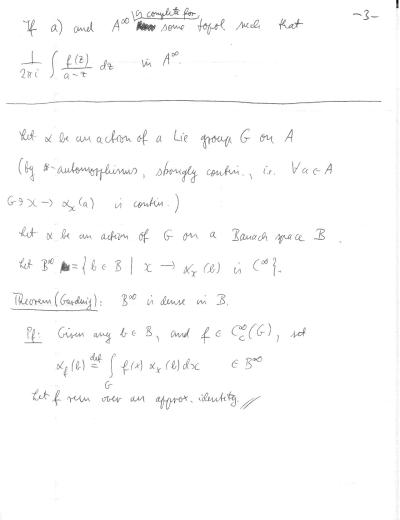 -3-
If a) and A^∞ is complete for some topol such that
1/2πi ∫ f(z)/(a-z) dz in A^∞.
Let α be an action of a Lie group G on A
(by *-automorphisms, strongly contin., i.e. ∀a∈A
G∋x → α_x(a) is contin.)
Let α be an action of G on a Banach space B.
Let B^∞ = {b∈B | x → α_x(b) is C^∞}.
Theorem (Garding): B^∞ is dense in B.
Pf: Given any b∈B, and f∈C_c^∞(G), set
α_f(b) def= ∫_G f(x) α_x(b) dx ∈ B^∞
Let f run over an approx. identity //